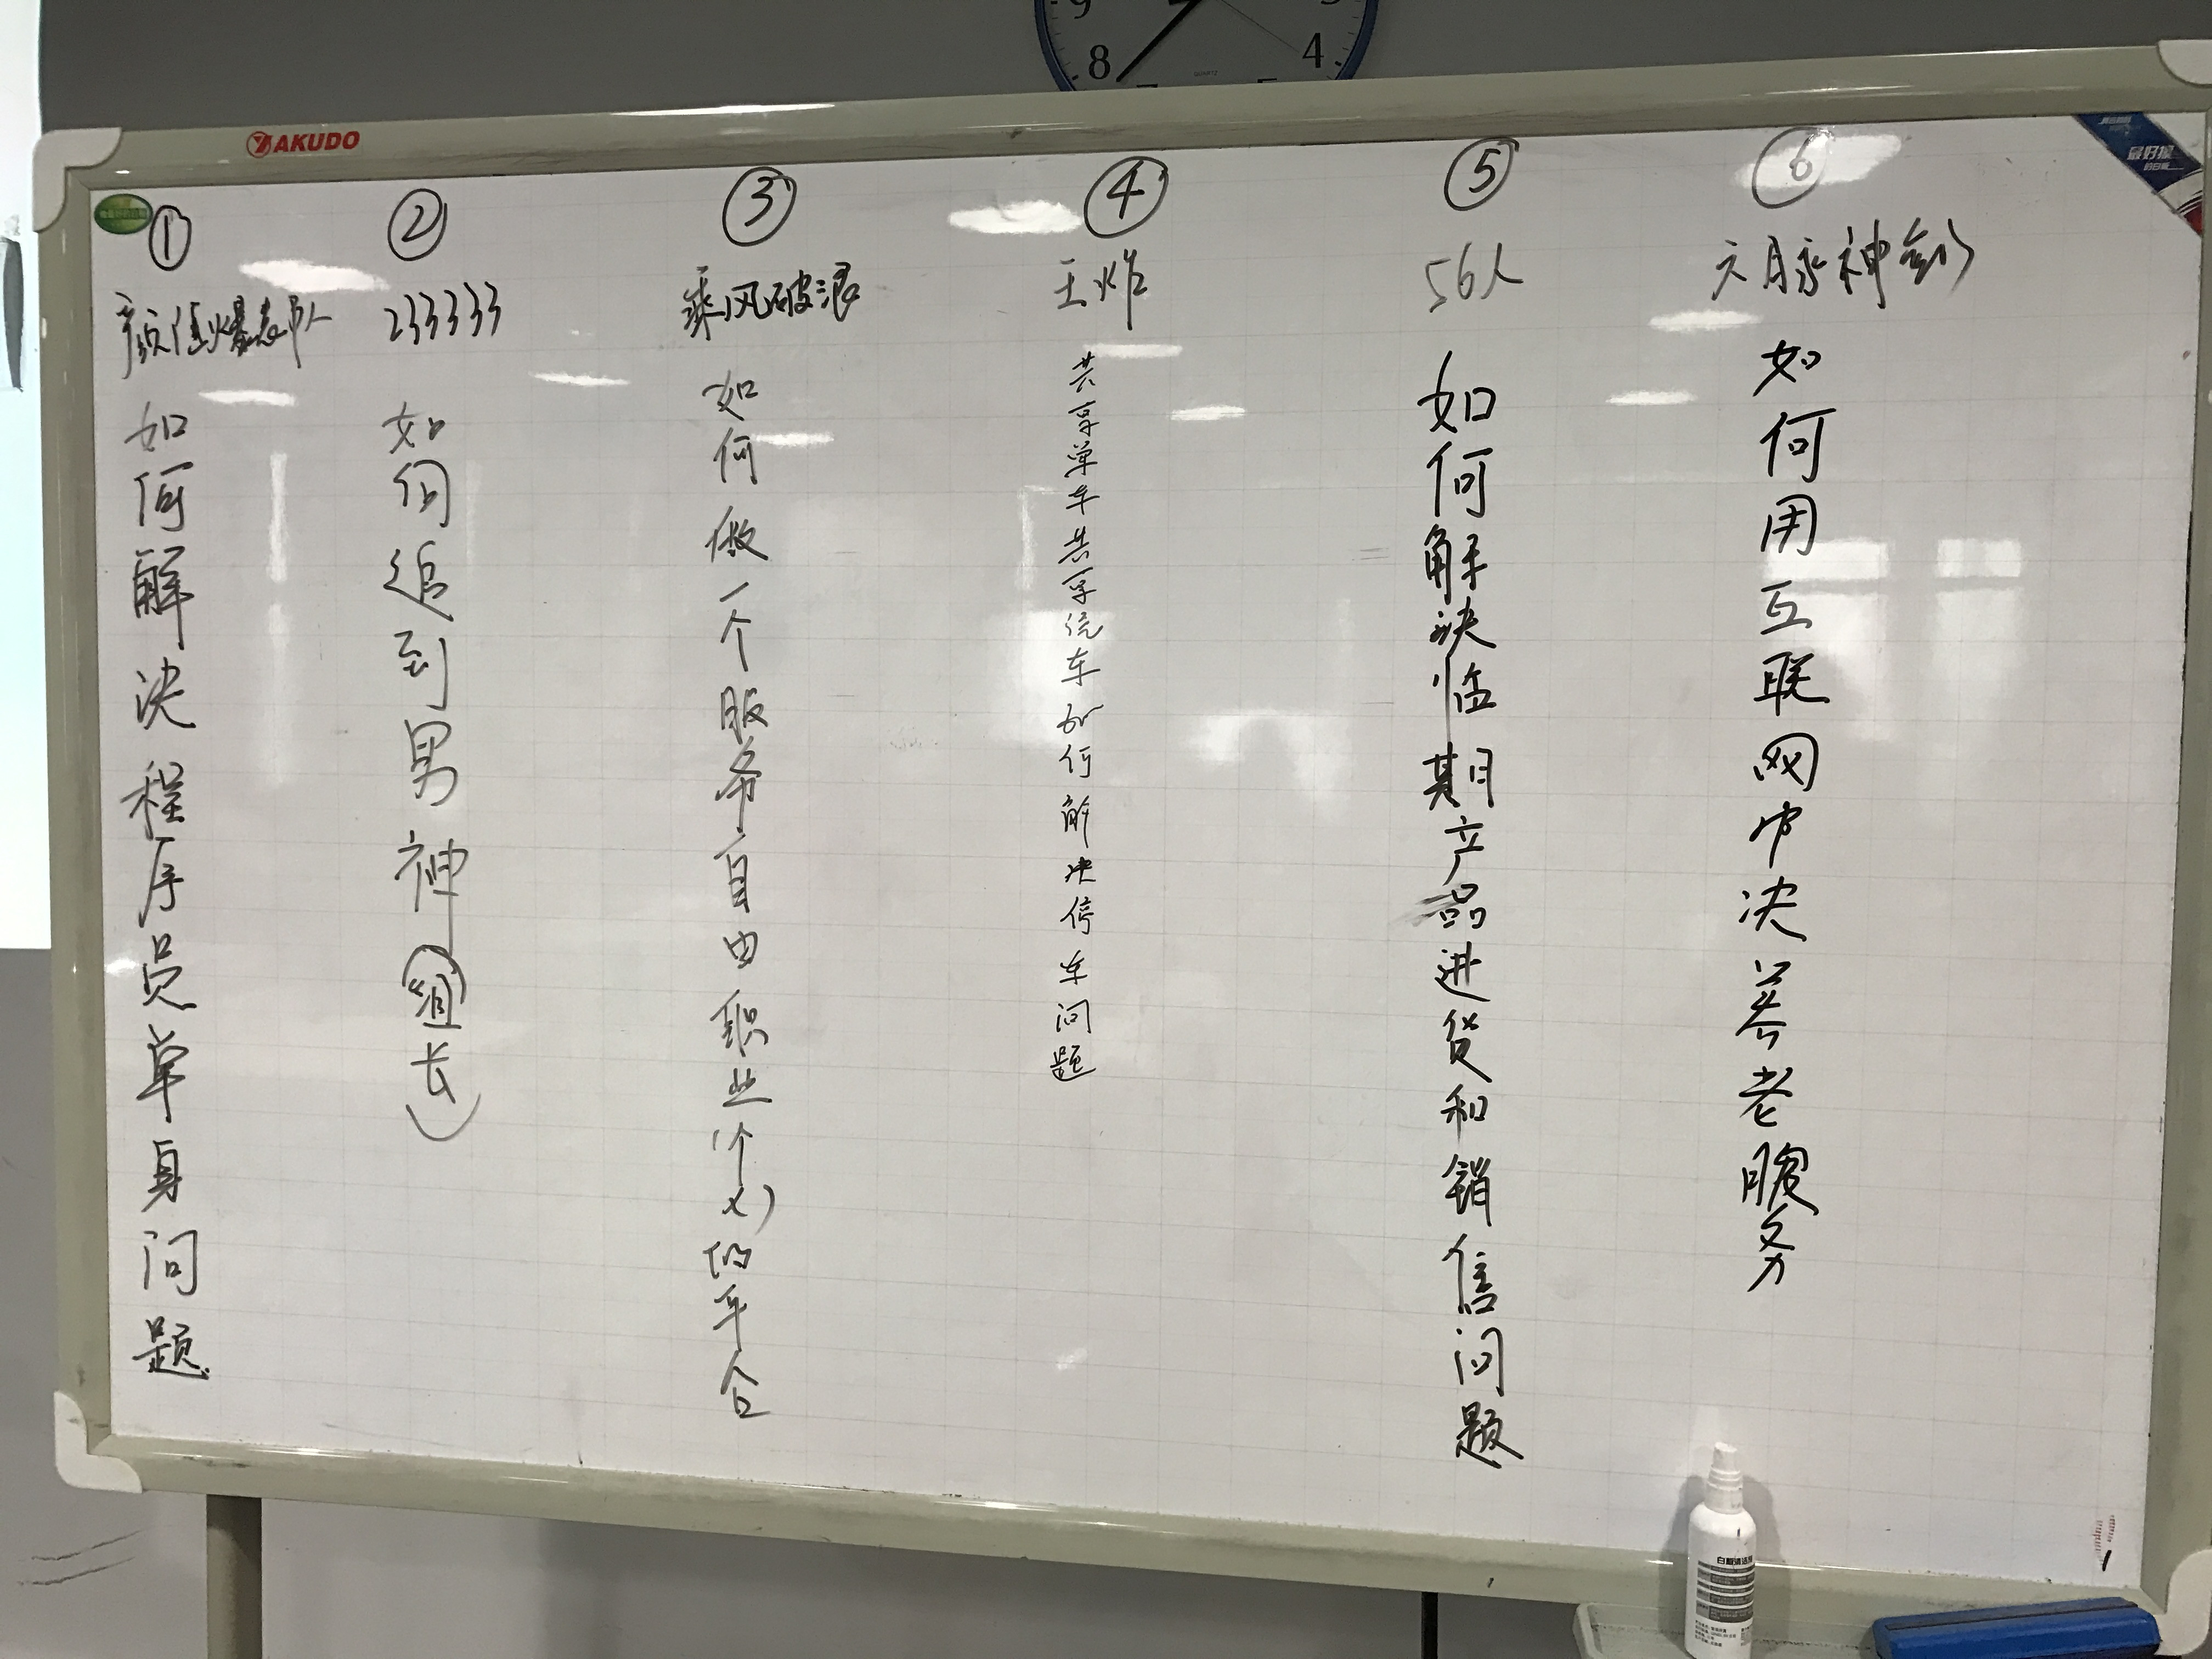 9
8
4
YAKUDO
最好擦
①
颜值爆表队
如何解决程序员单身问题
②
233333
如何追到男神(道长)
③
乘风破浪
如何做一个服务自由职业(个人)的平台
④
王炸
共享单车共享汽车如何解决停车问题
⑤
56人
如何解决临期产品进货和销售问题
⑥
六脉神剑
如何用互联网+决养老服务
白板清洁